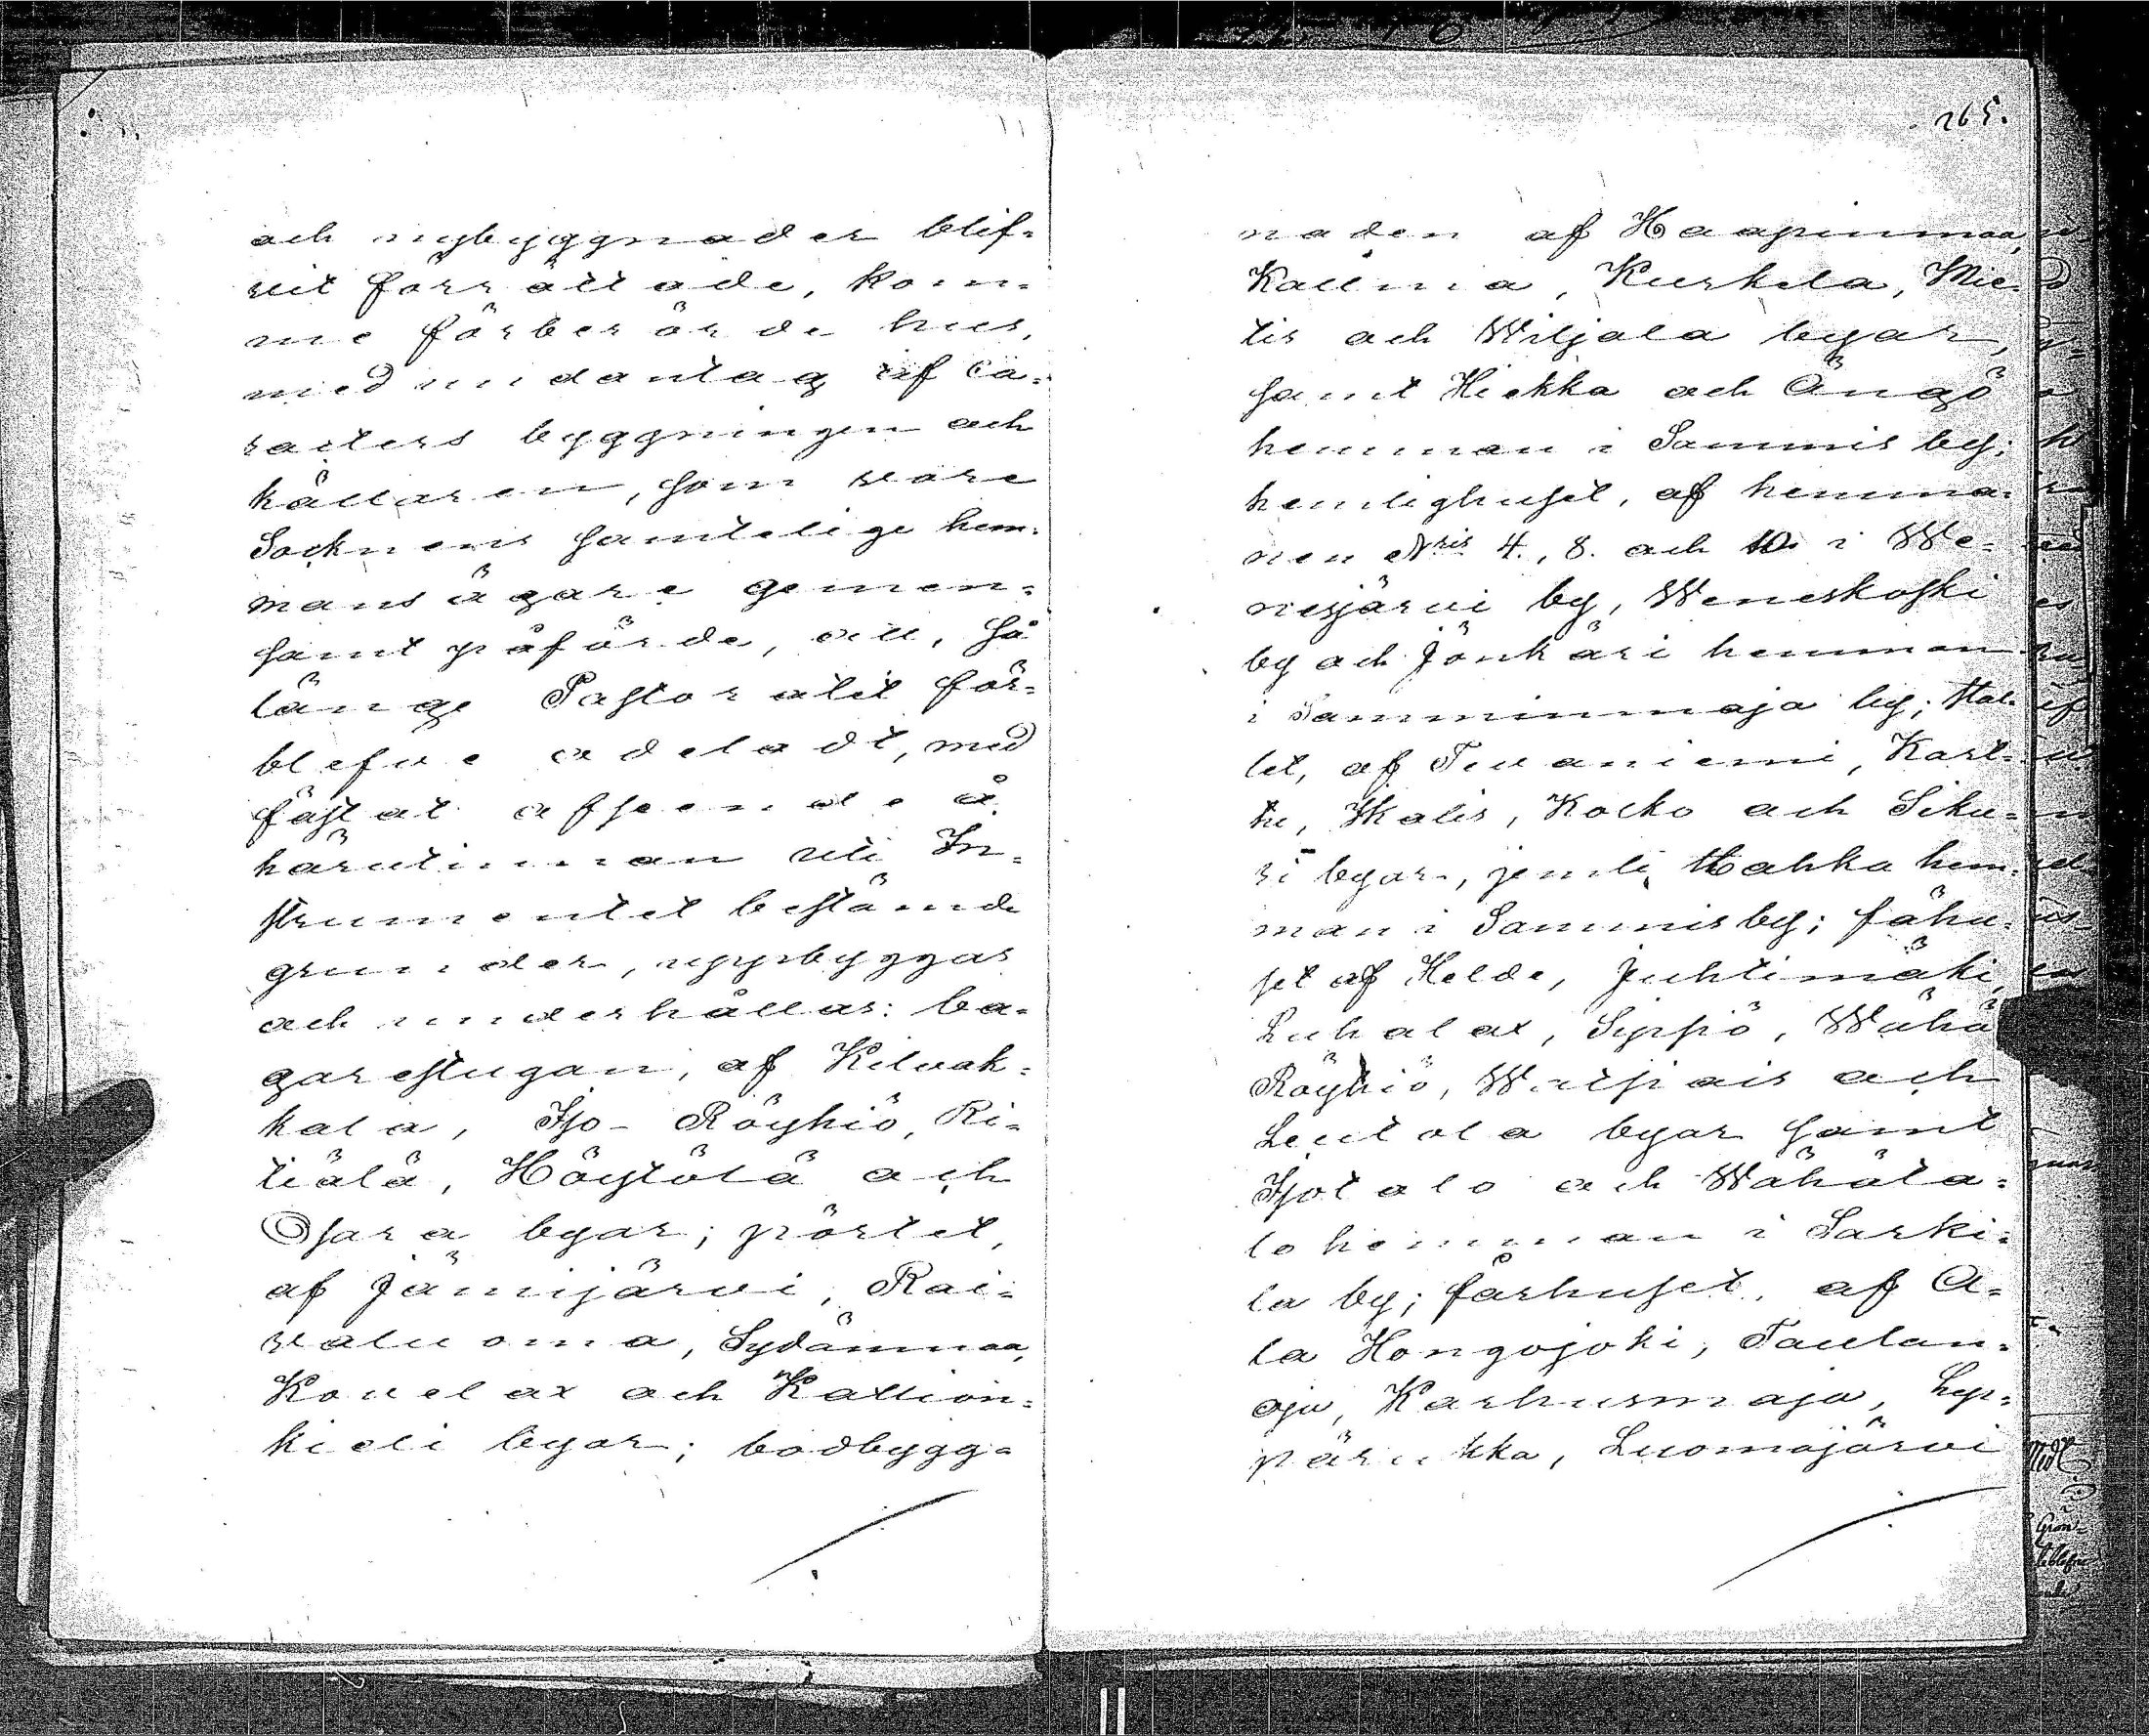 och nybyggnader blif-
vit förrättade, kom-
me förberörde hus,
med undantag af ca-
racters byggningen och
källaren, som vore
Socknens samtelige hem-
mans ägare gemen-
samt påförde, att, så
länge Pastoratet för-
blefve odeladt, med
fästat afseende å
härutinnan uti In-
strumentet bestämde
grunder, uppbyggas
och underhållas: ba-
garestugan, af Kilvak-
kala, Iso-Röyhiö, Ri-
tiälä, Höytölä och
Osara byar; pörtet,
af Jämijärvi, Rai-
valuoma, Sydänmaa,
Kovelax och Kallion-
kieli byar; bodbygg-
265.
naden af Haapinmaa,
Kallmaa, Kurkela, Mie-
tis och Wiljala byar,
samt Hiekka och Ängö
hemman i Sammis by;
hemlighuset, af hemma-
nen Nris 4., 8. och 10. i We-
nesjärvi by, Weneskoski
by och Jönkäri hemman
i Samminmaja by; stal-
let, af Tevaniemi, Kart-
tu, Skalis, Kocko och Siku-
ri byar, jemte Hahka hem-
man i Sammis by; fähu-
set af Kelde, Juhtimäki,
Luhalax, Sypsiö, Wähä
Röyhiö, Watsiais och
Leutola byar samt
Isotalo och Wähäta-
lo hemman i Sarki-
la by; fårhuset, af A-
la Hongojoki, Taulan-
oja, Karhusmaja, Lyp-
pärukka, Luomajärvi